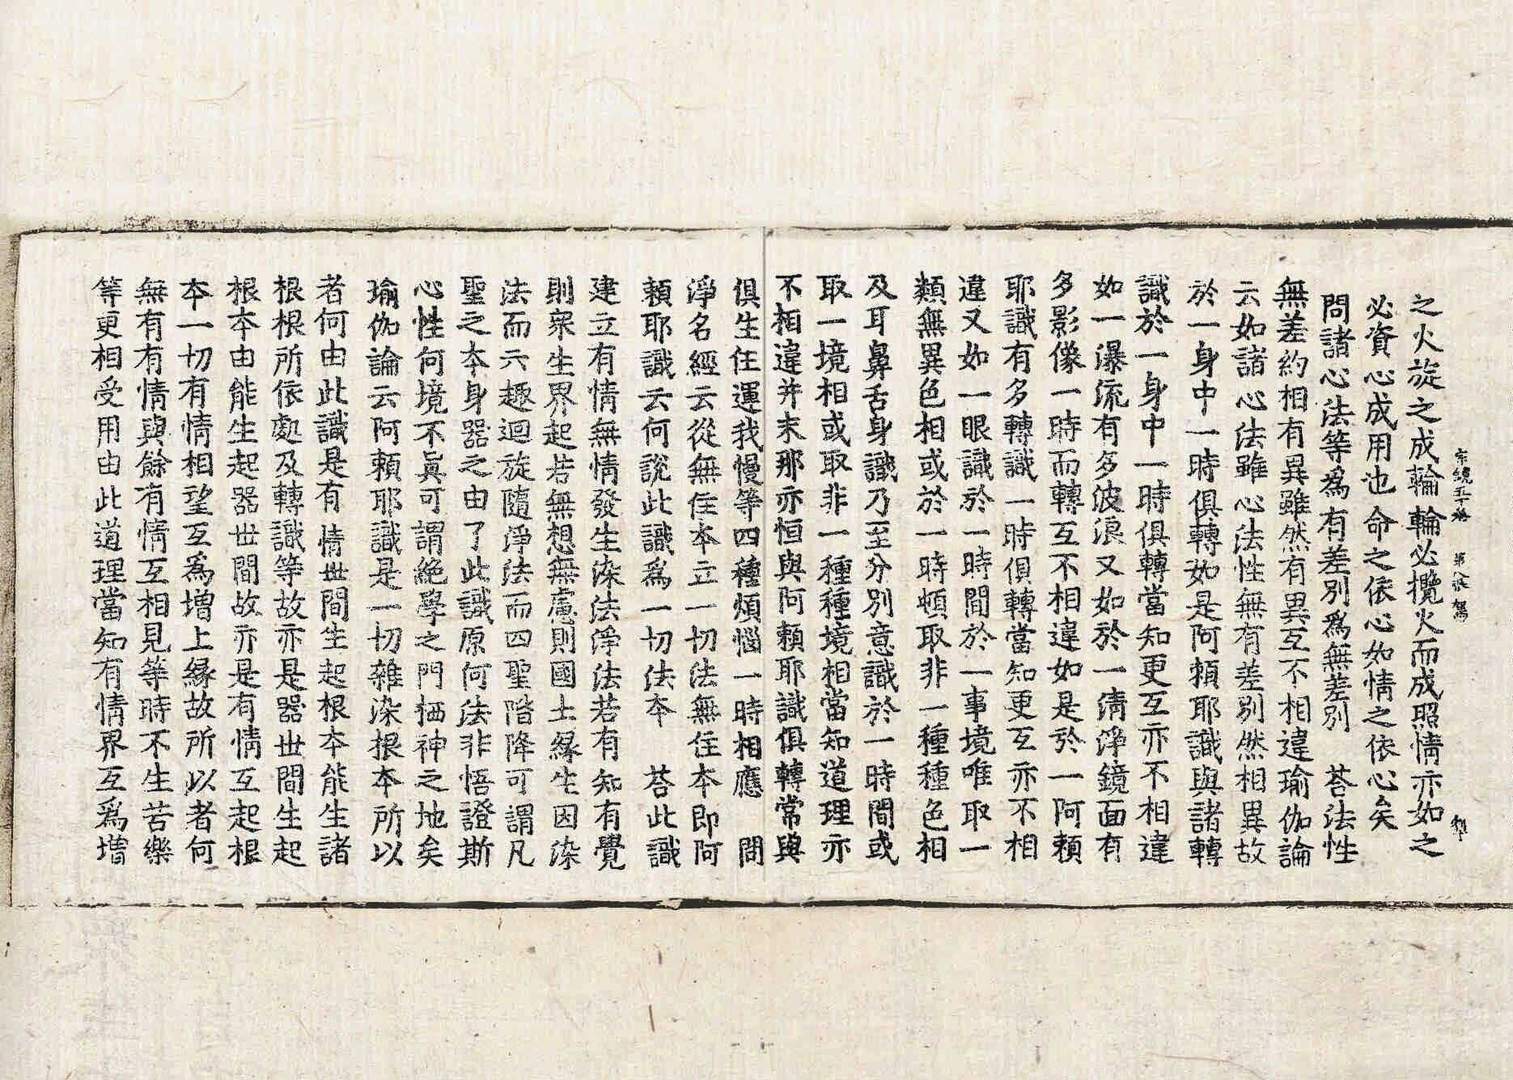 之火旋之成輪輪必攬火而成照情亦如之
必資心成用也命之依心如情之依心矣
問諸心法等爲有差別爲無差別　荅法性
無差約相有異雖然有異互不相違瑜伽論
云如諸心法雖心法性無有差別然相異故
於一身中一時俱轉如是阿頼耶識與諸轉
識於一身中一時俱轉當知更互亦不相違
如一瀑流有多波浪又如於一清淨鏡面有
多影像一時而轉互不相違如是於一阿頼
耶識有多轉識一時俱轉當知更互亦不相
違又如一眼識於一時間於一事境唯取一
類無異色相或於一時頓取非一種種色相
及耳鼻舌身識乃至分別意識於一時間或
取一境相或取非一種種境相當知道理亦
不相違并末那亦恒與阿頼耶識俱轉常與
俱生任運我慢等四種煩惱一時相應　問
淨名經云從無住本立一切法無住本即阿
頼耶識云何說此識爲一切法本　荅此識
建立有情無情發生染法淨法若有知有覺
則衆生界起若無想無慮則國土緣生因染
法而六趣迴旋隨淨法而四聖階降可謂凡
聖之本身器之由了此識原何法非悟證斯
心性何境不真可謂絕學之門栖神之地矣
瑜伽論云阿頼耶識是一切雜染根本所以
者何由此識是有情世間生起根本能生諸
根根所依處及轉識等故亦是器世間生起
根本由能生起器世間故亦是有情互起根
本一切有情相望互爲增上緣故所以者何
無有有情與餘有情互相見等時不生苦樂
等更相受用由此道理當知有情界互爲增